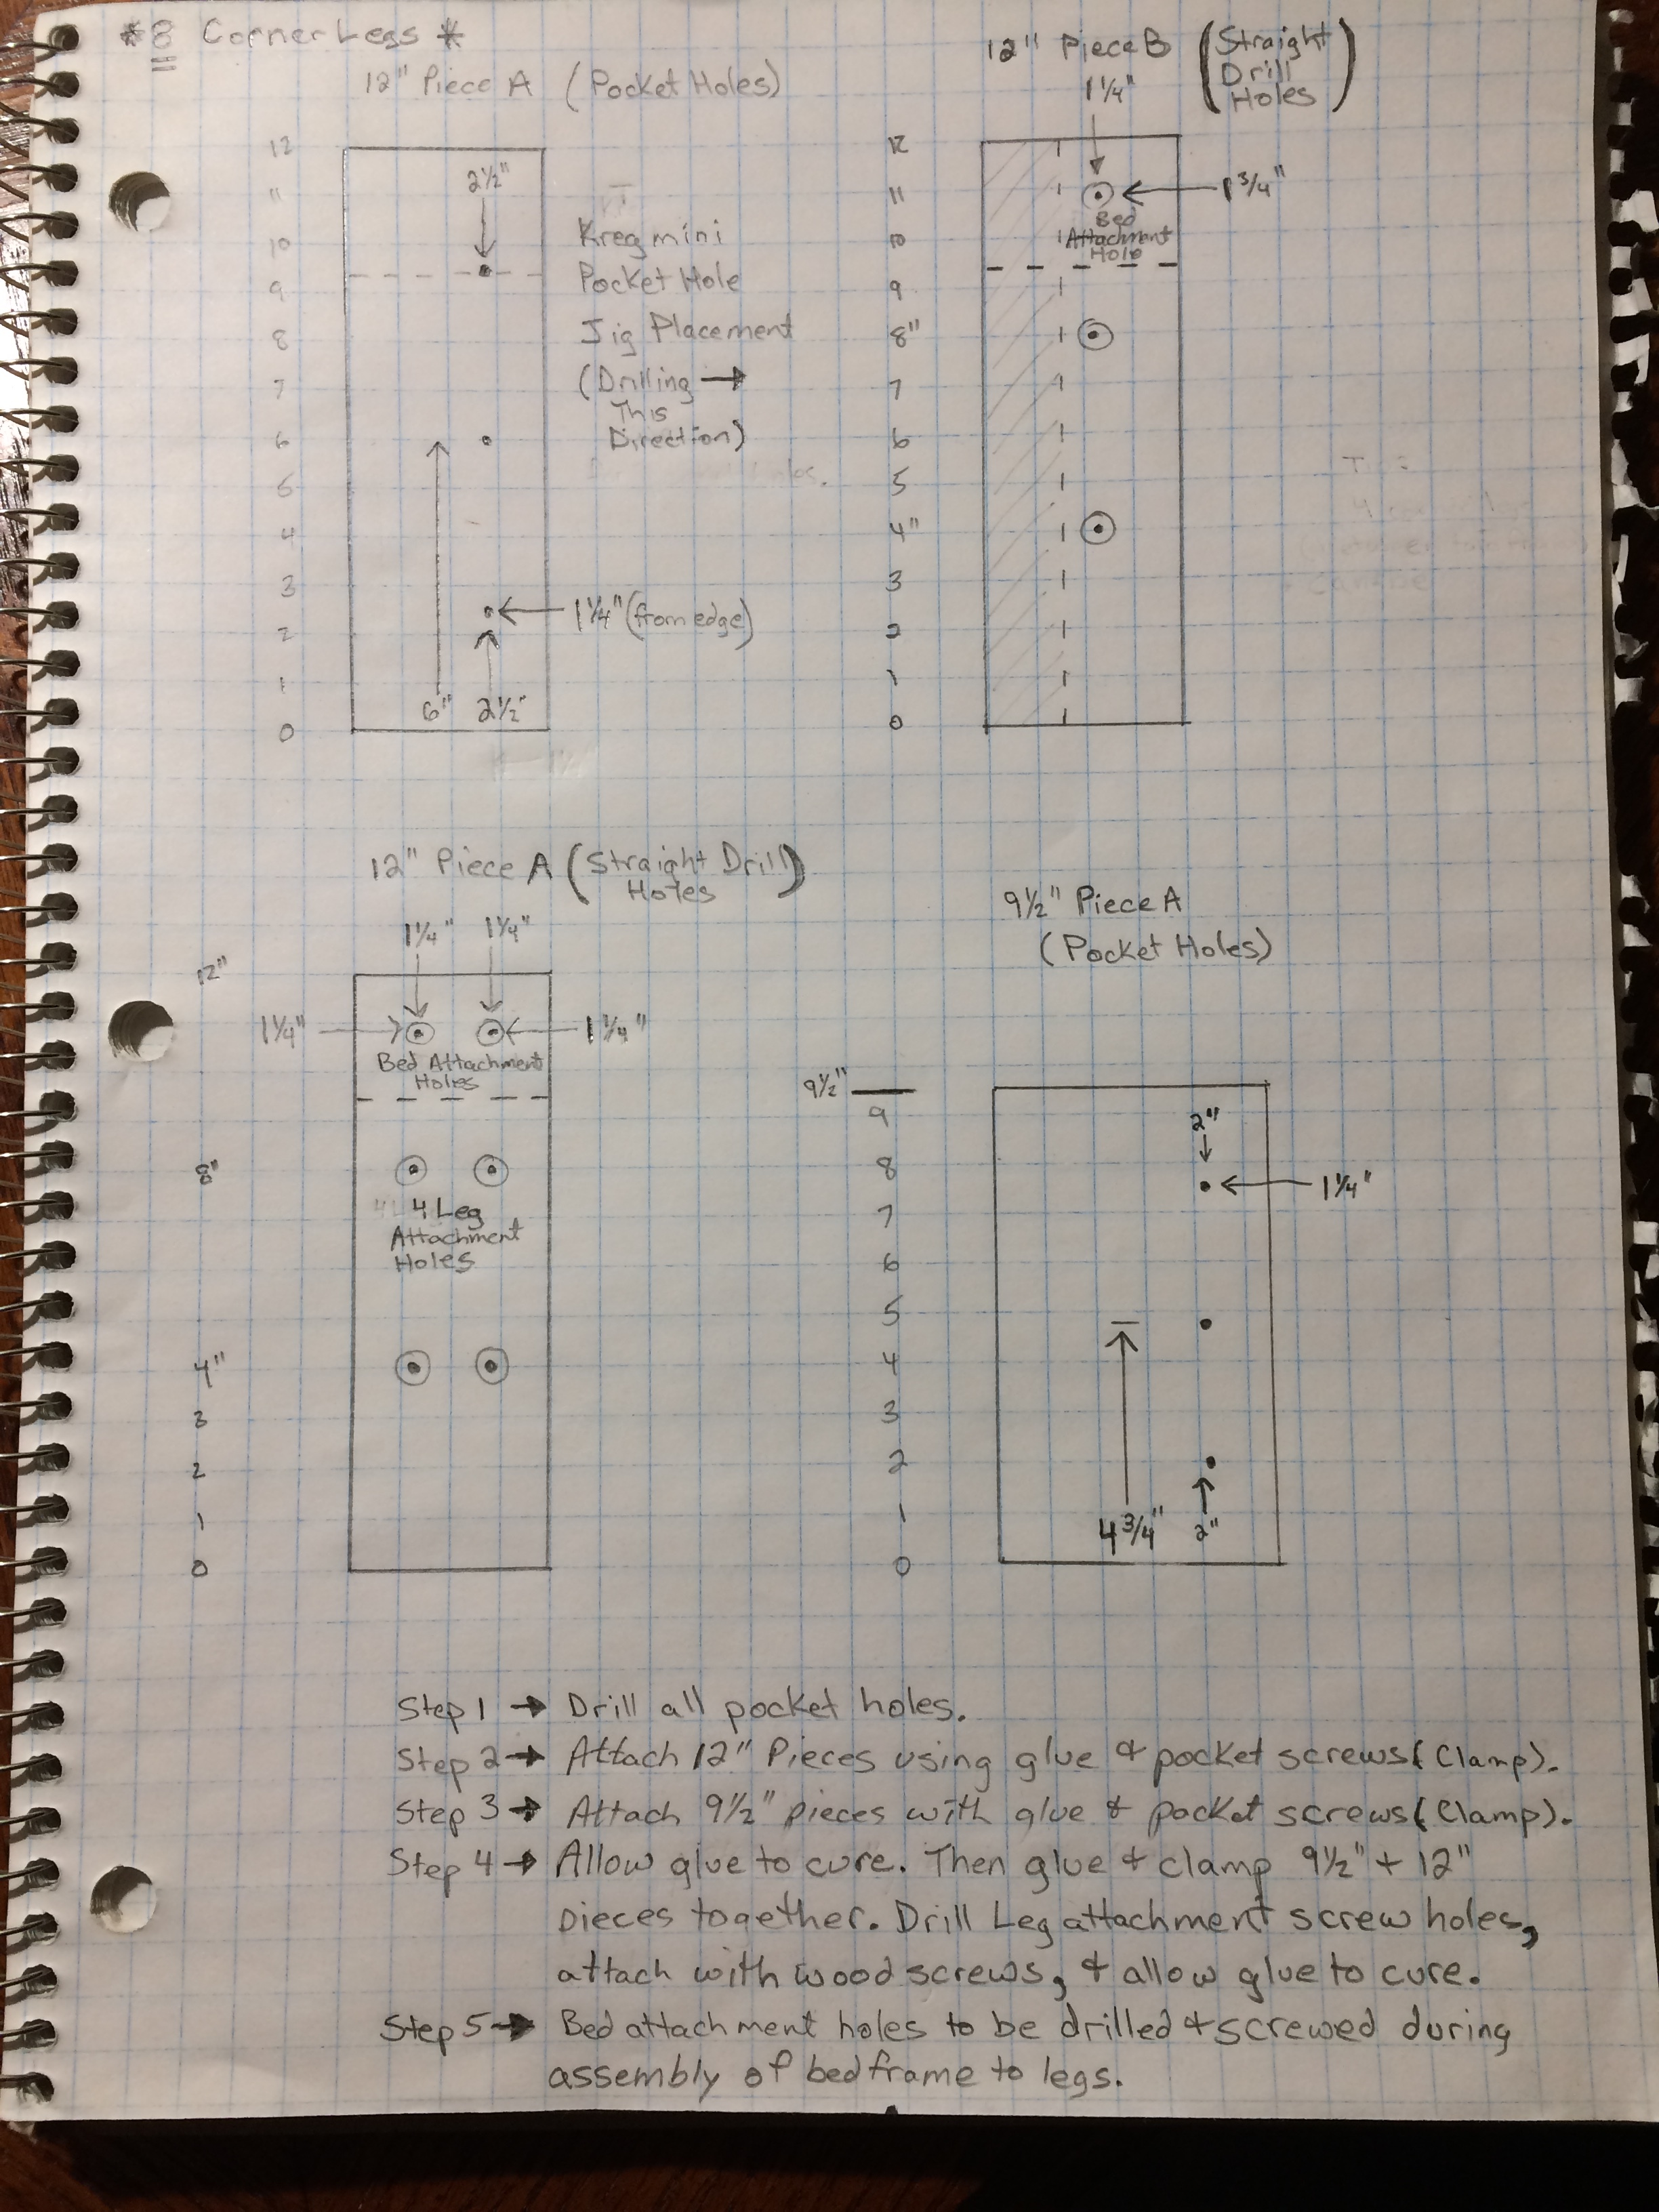 *8 Corner Legs *
12" Piece A (Pocket Holes)
12
11
10
9
8
7
6
5
4
3
2
1
0
2½"
Kreg mini
Pocket Hole
Jig Placement
(Drilling →
This
Direction)
1¼" (from edge)
6" 2½"
12" Piece B (Straight
Drill
Holes)
1¼"
12
11
10
9
8"
7
6
5
4"
3
2
1
0
1¾"
Bed
Attachment
Hole
12" Piece A (Straight Drill)
Holes
1¼" 1¼"
12"
1¼" 1¼"
Bed Attachment
Holes
8"
4 Leg
Attachment
Holes
4"
3
2
1
0
9½" Piece A
(Pocket Holes)
9½"
9
8
7
6
5
4
3
2
1
0
2"
1¼"
4¾" 2"
Step 1 → Drill all pocket holes.
Step 2 → Attach 12" Pieces using glue & pocket screws (Clamp).
Step 3 → Attach 9½" pieces with glue & pocket screws (Clamp).
Step 4 → Allow glue to cure. Then glue & clamp 9½" + 12"
pieces together. Drill Leg attachment screw holes,
attach with wood screws, & allow glue to cure.
Step 5 → Bed attachment holes to be drilled & screwed during
assembly of bedframe to legs.